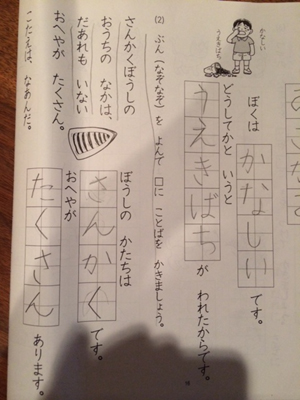 かなしい
うえきばち
ぼくは かなしい です。
どうしてかと いうと
うえきばち が われたからです。
(2) ぶん(なぞなぞ)を よんで 口に ことばを かきましょう。
さんかくぼうしの
おうちの なかは、
だあれも いない
おへやが たくさん。
こたえは、なあんだ。
ぼうしの かたちは
さんかく です。
おへやが
たくさん あります。